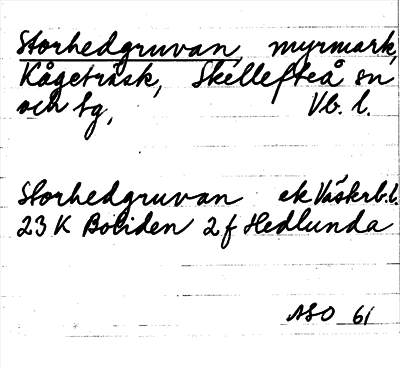 Storhedgruvan, myrmark,
Kågeträsk, Skellefteå sn
och tg, Vb. l.
Storhedgruvan ek Västerb.l.
23 K Boliden 2 f Hedlunda
ASO 61